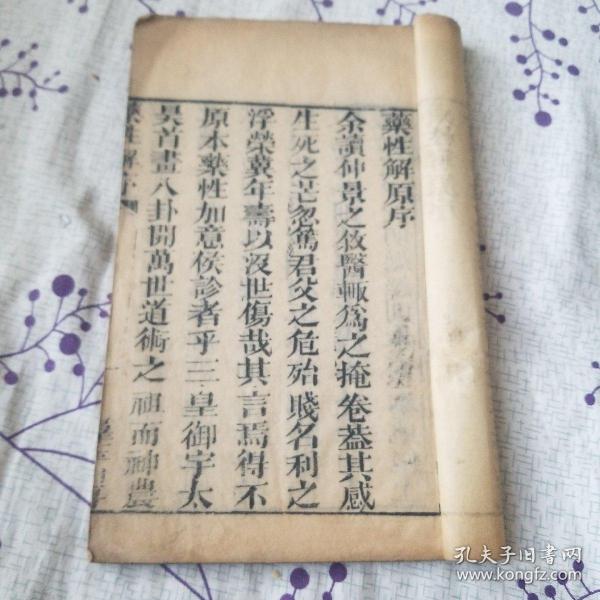 藥性解原序
余讀仲景之敘醫輙爲之掩卷葢其感
生死之芒忽篤君父之危殆賤名利之
浮榮冀年壽以沒世傷哉其言焉得不
原本藥性加意侯診者乎三皇御宇太
昊首畫八卦開萬世道術之祖而神農
藥性解序
孔夫子旧书网
www.kongfz.com